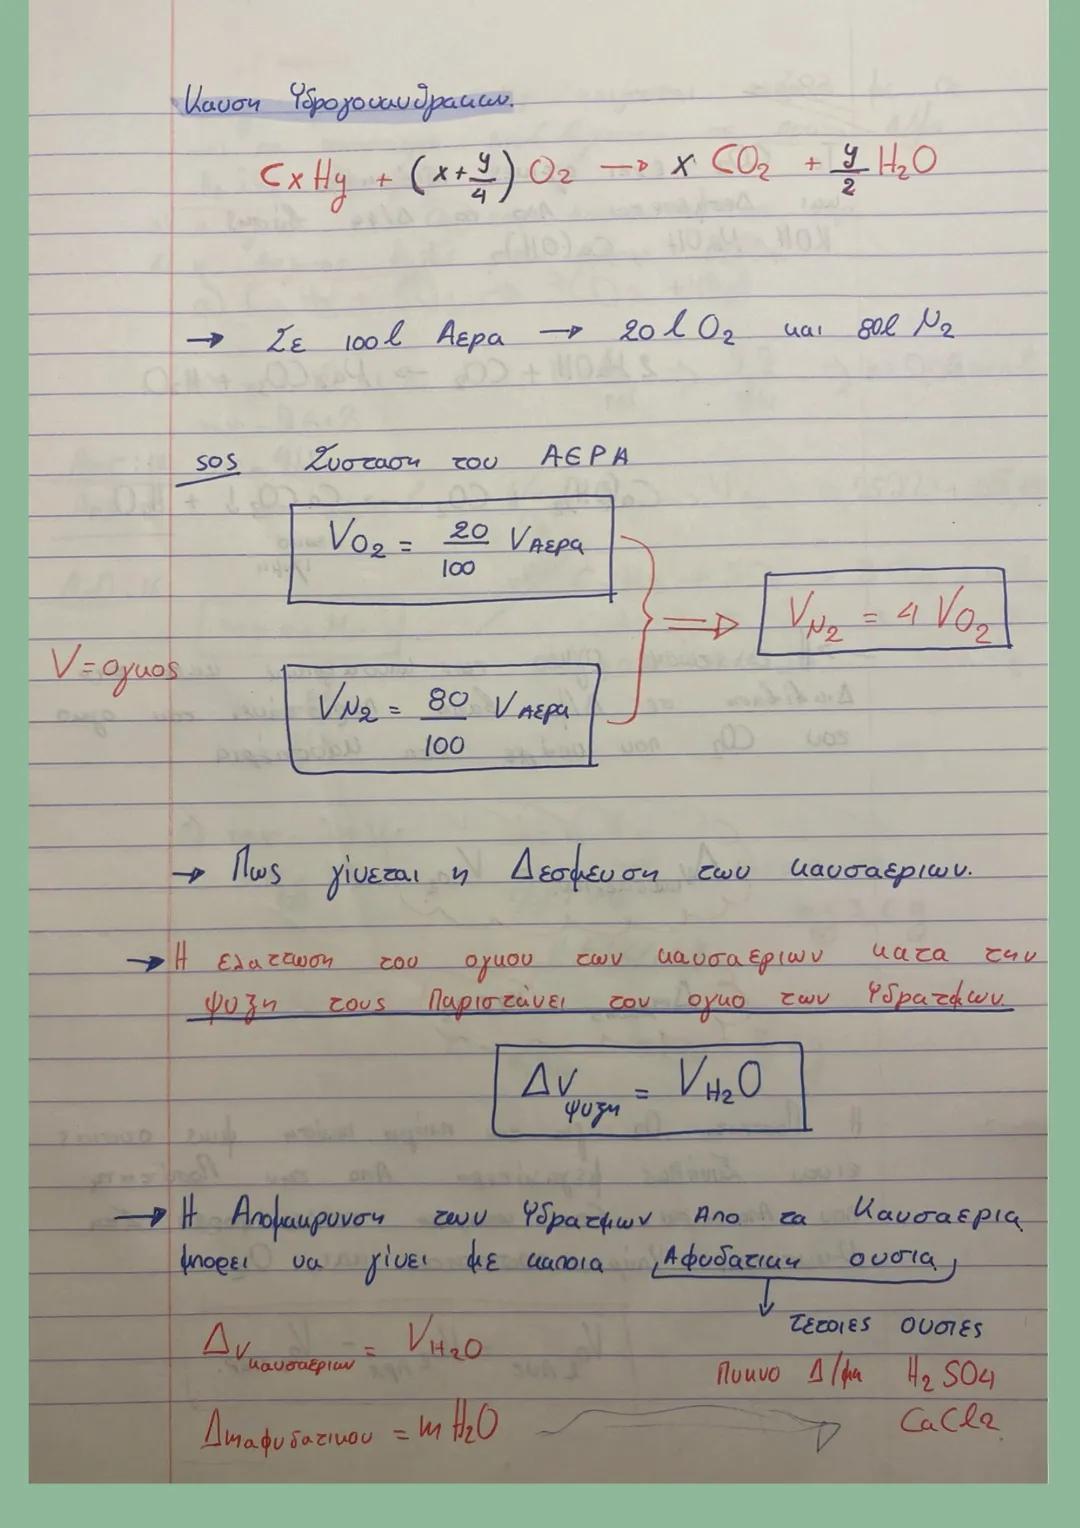 Καυση Υδρογονανθρακων.
CxHy + (x + y/4) O2 → x CO2 + y/2 H2O
→ Σε 100 l Αερα → 20 l O2 και 80l N2
SOS Συσταση του ΑΕΡΑ
VO2 = 20/100 VΑερα
VN2 = 4 VO2
V = ογκος
VN2 = 80/100 VΑερα
→ Πως γίνεται η Δεσμευση των καυσαεριων.
→ Η ελαττωση του ογκου των καυσαεριων κατα την
ψυξη τους Παριστάνει τον ογκο των Υδρατμων
ΔVψυξη = VH2O
→ Η Απομακρυνση των Υδρατμων Απο τα Καυσαερια
μπορει να γίνει με καποια Αφυδατικη ουσια
τετοιες ουσιες
ΔVκαυσαεριων = VH2O
Πυκνο Δ/μα H2SO4
Δmαφυδατικου = mH2O
CaCl2